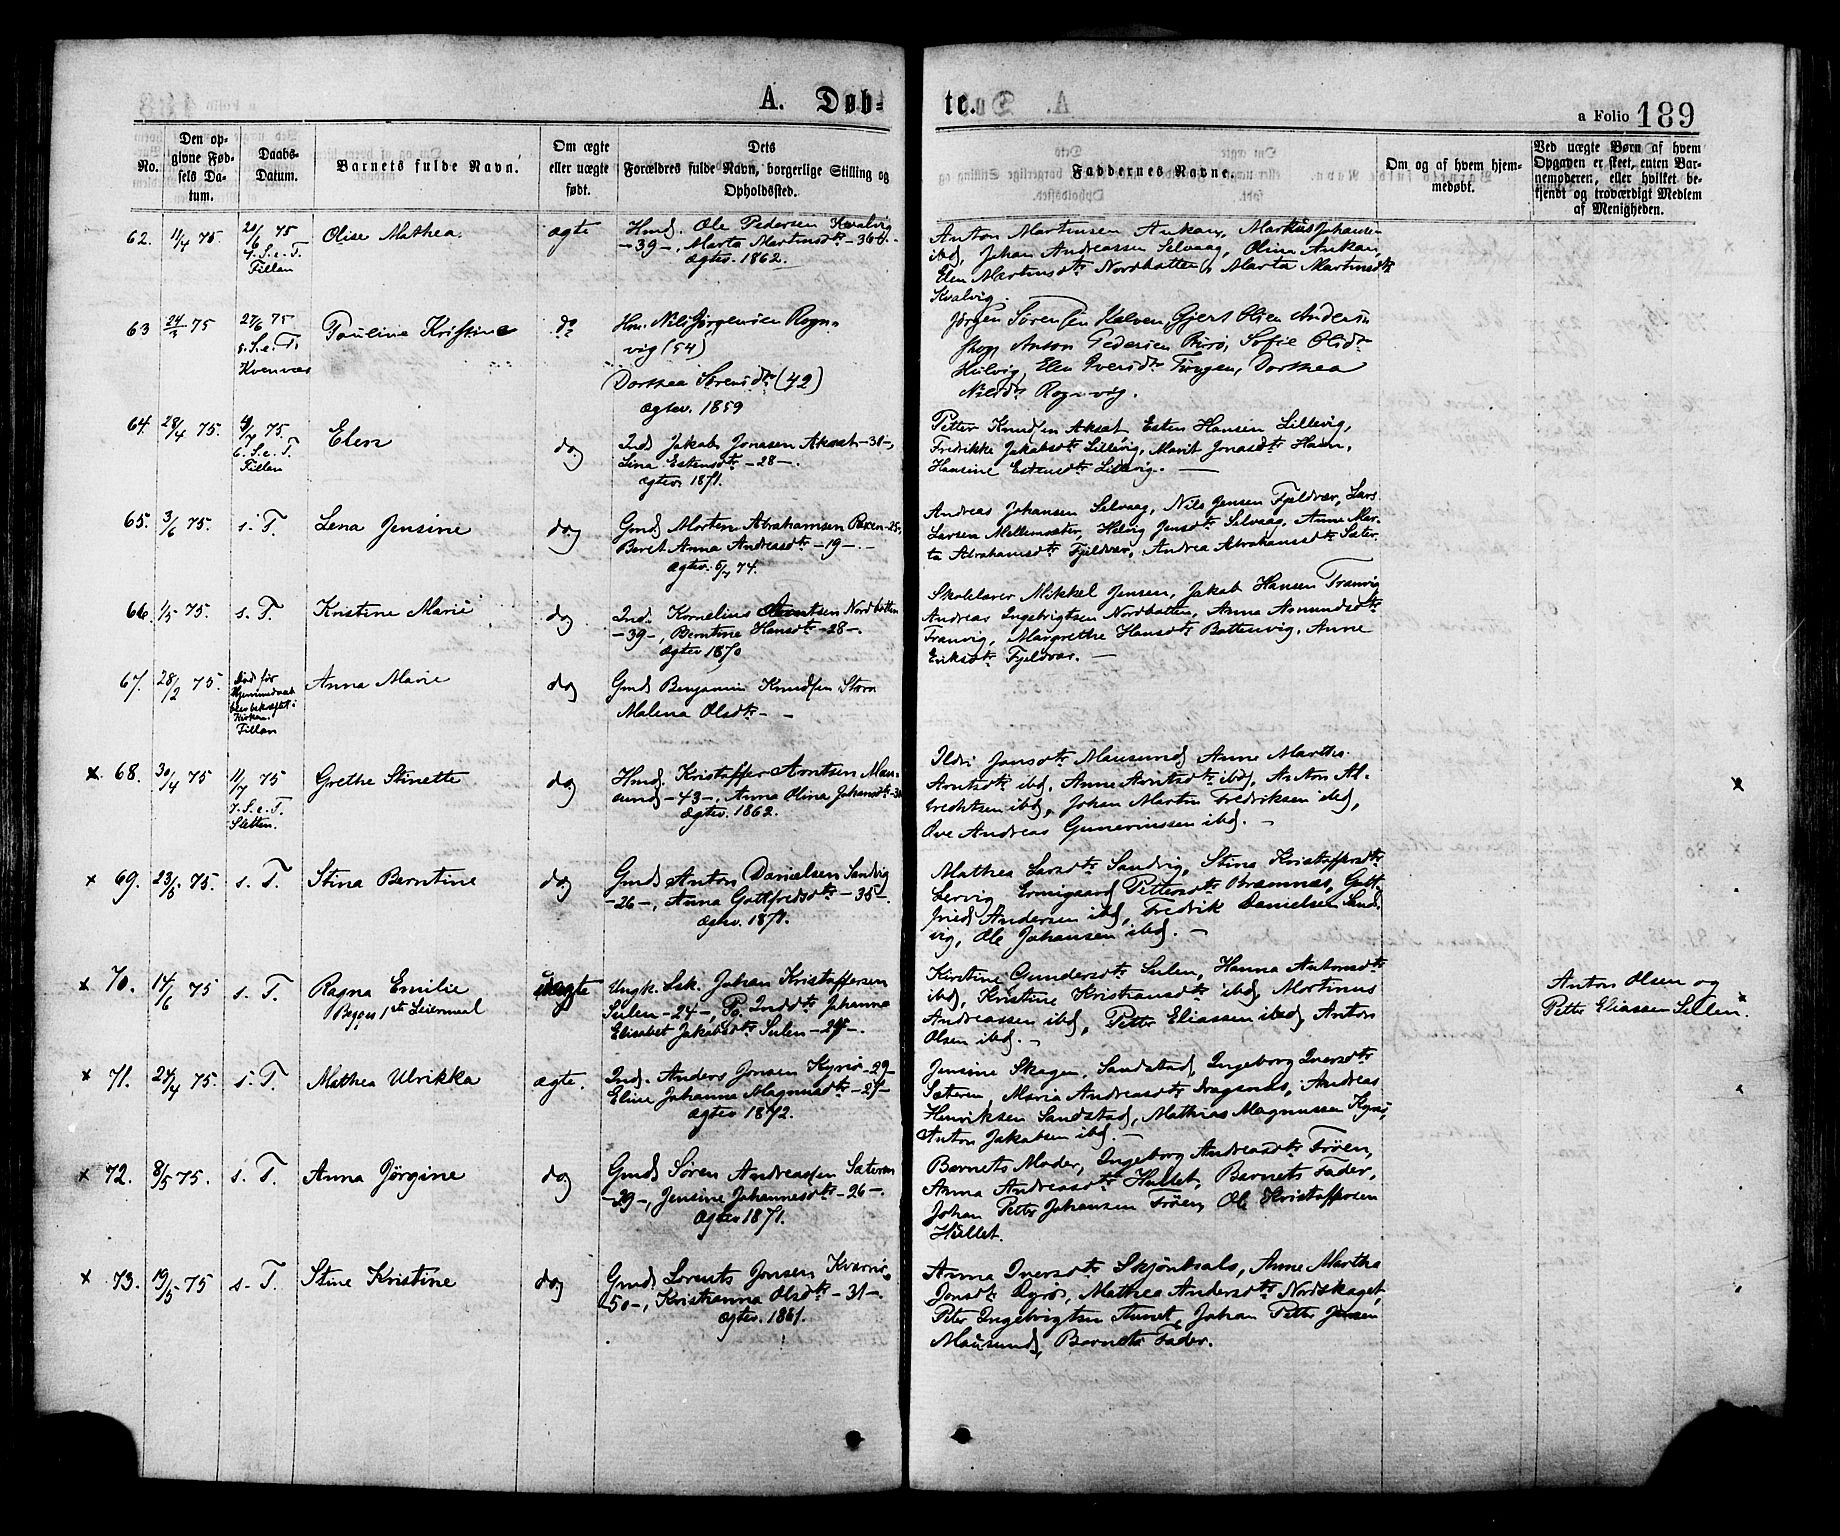 A. Døb-
te.
a Folio 189
No.
Den op-
givne Fød-
sels Da-
tum.
Daabs-
Datum.
Barnets fulde Navn.
Om ægte
eller uægte
født.
Dets
Forældres fulde Navn, borgerlige Stilling og
Opholdssted.
Faddernes Navne.
Om og af hvem hjem-
medøbt.
Ved uægte Børn af hvem
Opgaven er skeet, enten Bar-
nemoderen, eller hvilket be-
kjendt og troværdigt Medlem
af Menigheden.
62. 11/4 75
20/6 75
4. S. e. T.
Fillan
Olise Mathea.
ægte
Hmd. Ole Pedersen Kvalvig
-39-, Marta Martinsdtr -36-.
Ægtev. 1862.
Anton Martinsen Ankan, Markus Johansen
ibd, Johan Andreassen Selvaag, Olina Ankan,
Elen Martinsdtr Nordbotten, Marta Martinsdtr
Kvalvig.
63 24/3 75
27/6 75
5. S. e. T.
Kvenvær
Paulina Kristine
do
Hm. Nils Jørgensen Rogn-
vig (54)
Dorthea Sørensdtr (42)
Ægtev. 1859
Jørgen Sørensen Kalven, Gjert Olsen Anders-
skog, Anton Pedersen Burø, Sofie Olsdtr
Hulvig, Elen Iversdtr Tungen, Dorthea
Nilsdtr Rognvig.
64. 28/4 75.
4/7 75.
6. S. e. T.
Fillan
Elen
do
Ind. Jakob Jonasen Akset -31-,
Lina Estensdtr -28-.
Ægtev. 1871.
Petter Knudsen Akset, Esten Hansen Lillevig,
Fredrikke Jakobsdtr Lillevig, Marit Jonasdtr Havn,
Hansine Estensdtr Lillevig. —
65. 3/6 75. s. T.
Lena Jensine
do
Gmd. Morten Abrahamsen Roxen -25,
Beret Anna Andreasdtr -19-.
Ægtev. 5/7 74.
Andreas Johansen Selvaag, Nils Jensen Fjeldvær, Lars
Larsen Mellemsæter, Helvig Jensdtr Selvaag, Anne Mar-
ta Abrahamsdtr Fjeldvær, Andrea Abrahamsdtr Sæter.
66. 1/5 75. s. T.
Kristine Marie
do
Ind. Kornelius Arntsen Nordbotten
-39-, Berntine Hansdtr -28-.
Ægtev 1870
Skolelærer Mikkel Jensen, Jakob Hansen Tranvig
Andreas Ingebrigtsen Nordbotten, Anna Asmundsdtr
Tranvig, Margrethe Hansdtr Bottenvig, Anne
Eriksdtr Fjeldvær. —
67. 28/2 75.
Død før
Hjemmedaab
blev bekræftet i
Kirken.
Fillan
Anna Marie
do
Gmd. Benjamin Knudsen Storø
Malena Olsdtr - -
x 68. 30/4 75
11/7 75
7. S. e. T.
Sletten.
Grethe Stinette
do
Hmd. Kristoffer Arntsen Mau-
sund -43-, Anna Olina Johansdtr -3
Ægtev. 1862.
Ildri Jonsdtr Mausund, Anne Martha
Arntsdtr ibd, Anne Arntsdtr ibd, Anton Al-
brechtsen ibd, Johan Martin Fredriksen ibd,
Ove Andreas Gunerinssen ibd. —
x
x 69. 23/5 75. s. T.
Stina Berntine
do
Gmd. Anton Danielsen Sandvig
-26-, Anna Gottfredsdtr -35-.
Ægtev. 1871.
Mathea Larsdtr Sandvig, Stina Kristoffersdtr
Lervig, Ermegaard Pettersdtr Bremnæs, Gott-
fried Andersen ibd, Fredrik Danielsen Sand-
vig, Ole Johansen ibd. —
x 70. 14/6 75 s. T.
Ragna Emilie
Begges 1ste Leiermaal
uægte
Ungk. Lsk. Johan Kristoffersen
Sulen -24-, Pg. Inddtr Johanna
Elisabet Jakobsdtr Sulen -24-.
Kirstine Gundersdtr Sulen, Hanna Antonsdtr
ibd, Kristine Kristiansdtr ibd, Mortinus
Andreassen ibd, Petter Eliassen ibd, Anton
Olsen ibd. —
Anton Olsen og
Petter Eliassen Sulen.
x
x 71. 24/4 75. s. T.
Mathea Ulrikka
ægte.
Ind. Anders Jonsen Kyrø -29-
Eline Johanna Magnusdtr -27-
Ægtev 1872.
Jensine Skagen, Sandstad, Ingeborg Iversdtr
Sæteren, Maria Andreasdtr Dragsnæs, Andreas
Henriksen Sandstad, Mathias Magnussen Kyrø,
Anton Jakobsen ibd. —
x 72. 8/5 75. s. T.
Anna Jørgine
do
Gmd. Søren Andreassen Sæteren
-29-, Jensine Johannesdtr -26-.
Ægtev 1871.
Barnets Moder, Ingeborg Andreasdtr Frøen,
Anna Andreasdtr Hullet, Barnets Fader,
Johan Petter Johansen Frøen, Ole Kristoffersen
Hullet.
x 73. 19/5 75 s. T.
Stine Kristine
do
Gmd. Lorents Jonsen Kvarnø
-50-, Kristianna Olsdtr -31-.
Ægtev. 1861.
Anna Iversdtr Skjønhals, Anne Martha
Jonsdtr Dyrø, Mathea Andersdtr Nordskaget,
Peter Ingebrigtsen Stunet, Johan Petter Jensen
Mausund, Barnets Fader.